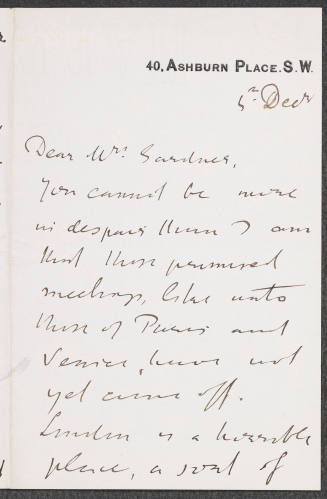 40, ASHBURN PLACE. S. W.
5th Decr
Dear Mrs Gardner,
You cannot be more
in despair than I am
that those promised
meetings, like unto
those of Paris and
Venice, have not
yet come off.
London is a horrible
place, a sort of